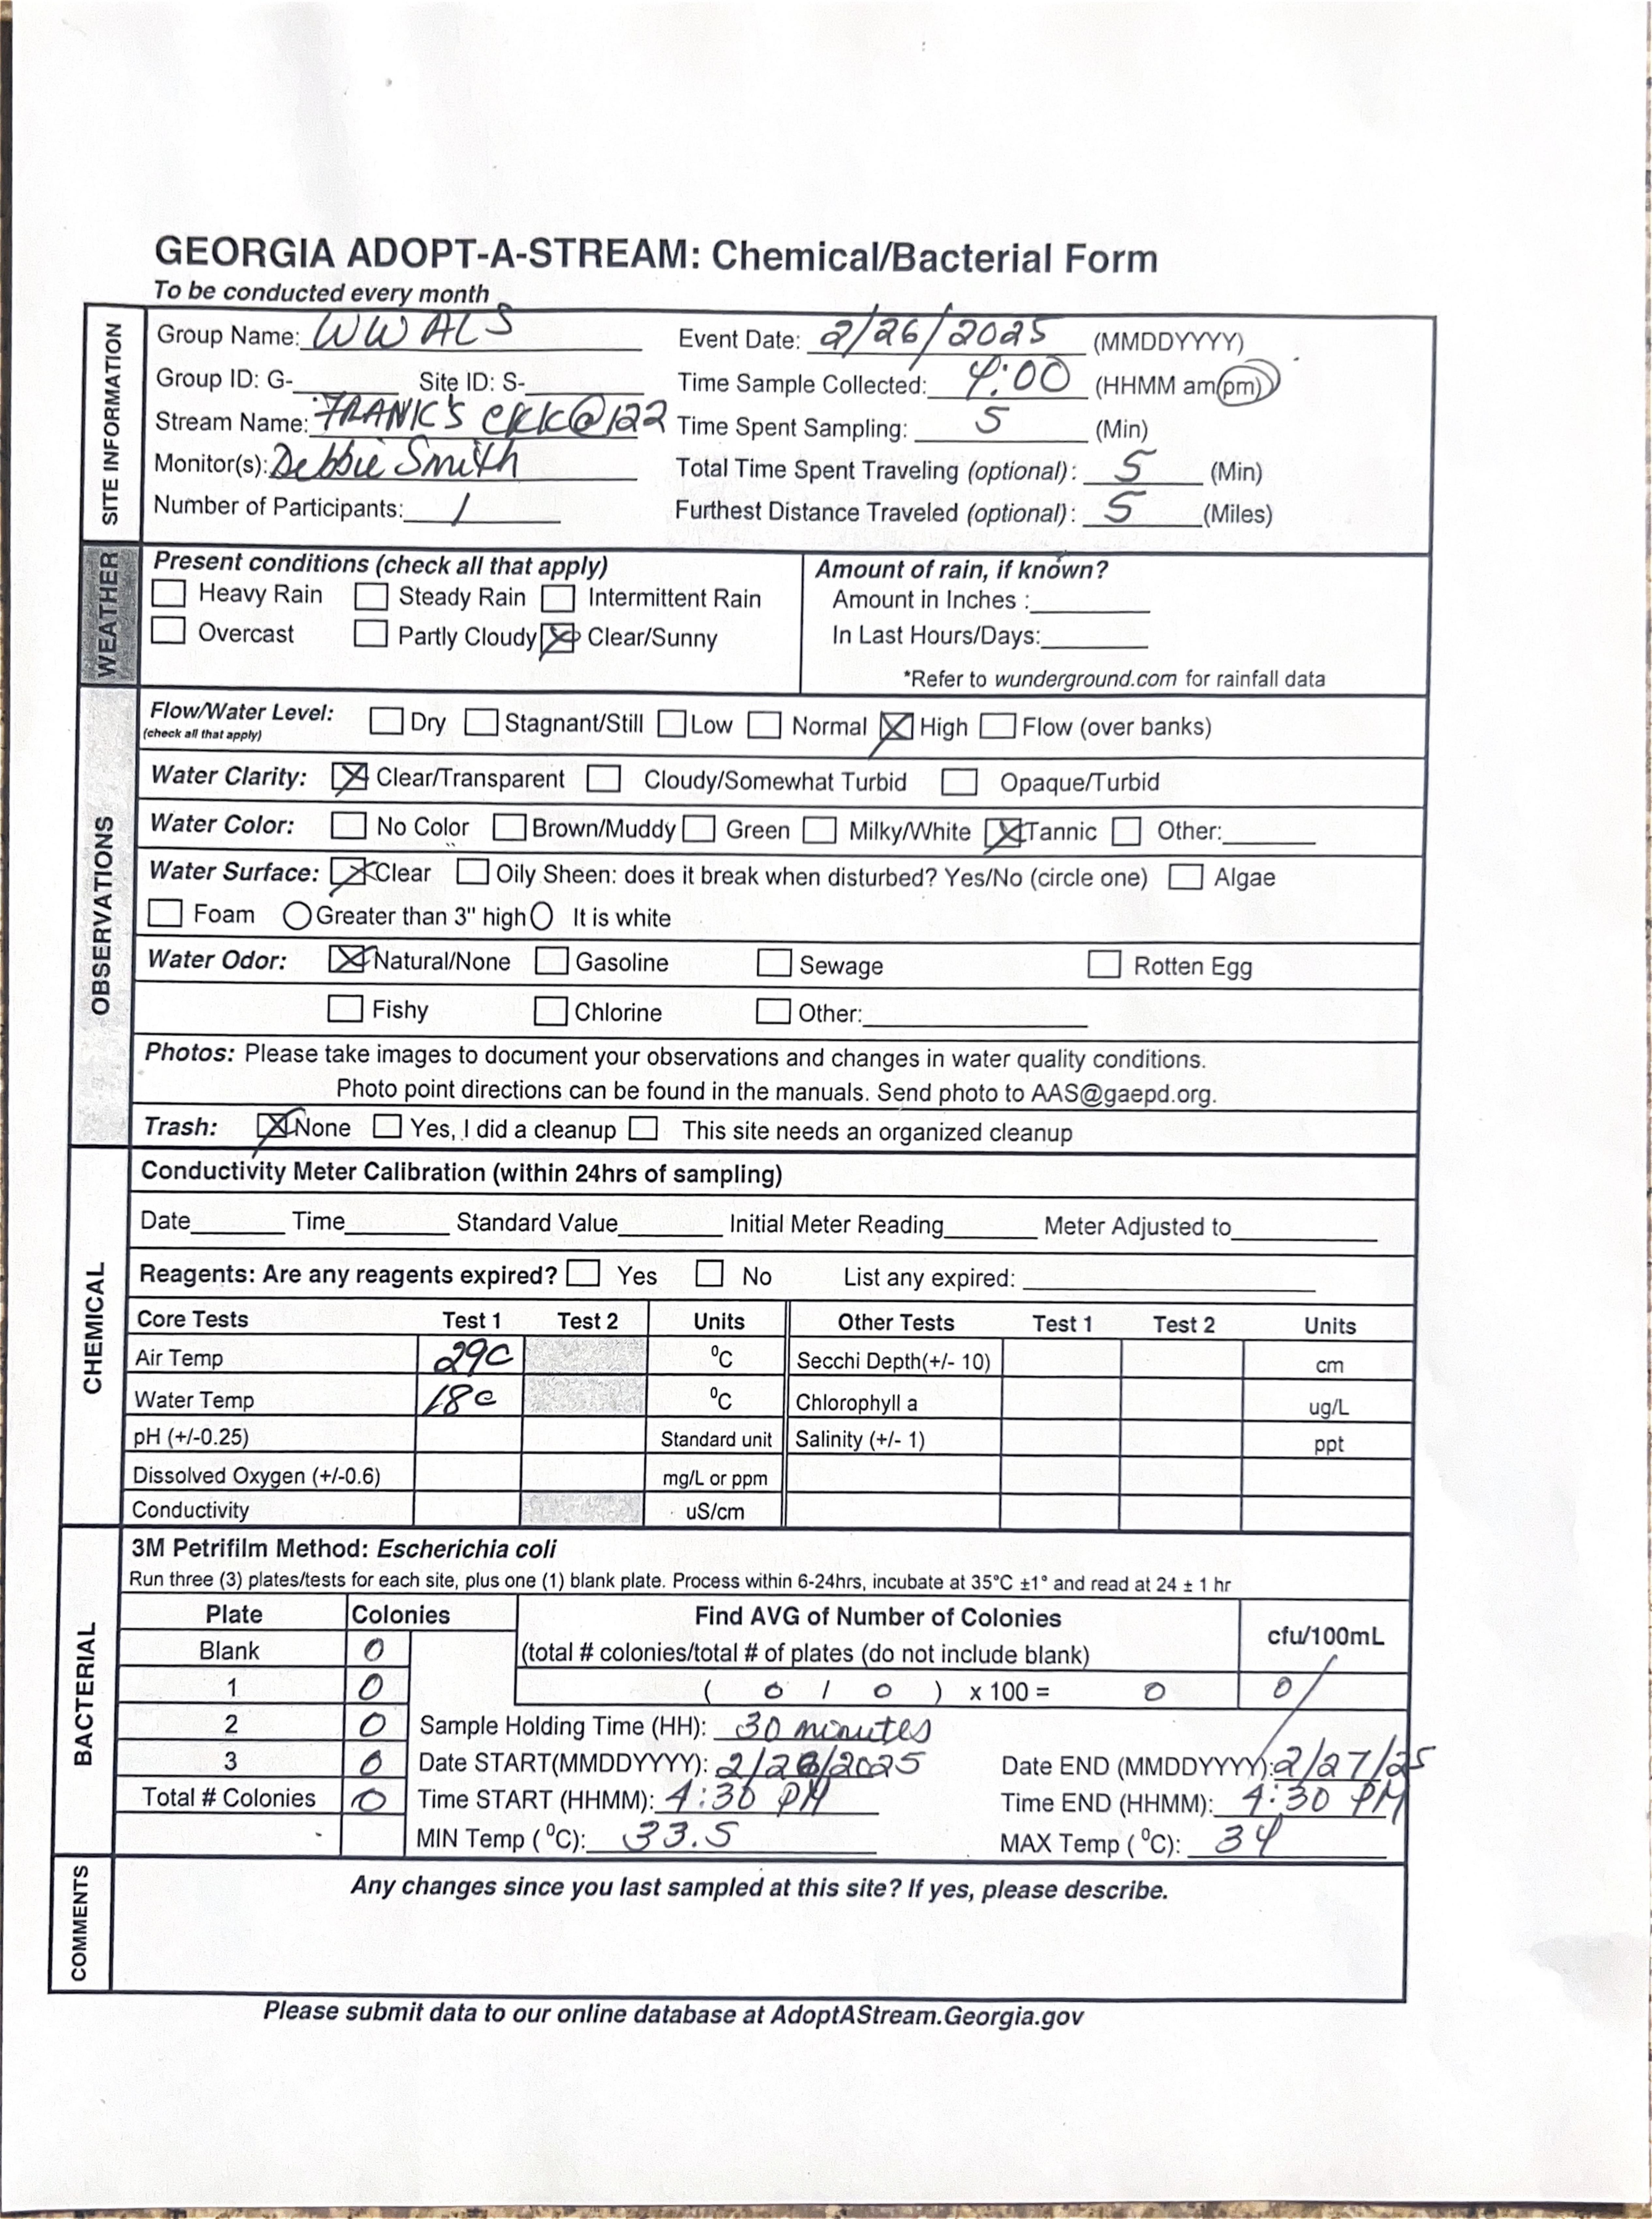 GEORGIA ADOPT-A-STREAM: Chemical/Bacterial Form
To be conducted every month
SITE INFORMATION
Group Name: WWALS Event Date: 2/26/2025 (MMDDYYYY)
Group ID: G-______ Site ID: S-______ Time Sample Collected: 4:00 (HHMM am/pm)
Stream Name: FRANK'S CRK@122 Time Spent Sampling: 5 (Min)
Monitor(s): Debbie Smith Total Time Spent Traveling (optional): 5 (Min)
Number of Participants: 1 Furthest Distance Traveled (optional): 5 (Miles)
WEATHER
Present conditions (check all that apply) Amount of rain, if known?
Heavy Rain Steady Rain Intermittent Rain Amount in Inches :______
Overcast Partly Cloudy Clear/Sunny In Last Hours/Days:______
*Refer to wunderground.com for rainfall data
OBSERVATIONS
Flow/Water Level: Dry Stagnant/Still Low Normal High Flow (over banks)
(check all that apply)
Water Clarity: Clear/Transparent Cloudy/Somewhat Turbid Opaque/Turbid
Water Color: No Color Brown/Muddy Green Milky/White Tannic Other:______
Water Surface: Clear Oily Sheen: does it break when disturbed? Yes/No (circle one) Algae
Foam Greater than 3" high It is white
Water Odor: Natural/None Gasoline Sewage Rotten Egg
Fishy Chlorine Other:______
Photos: Please take images to document your observations and changes in water quality conditions.
Photo point directions can be found in the manuals. Send photo to AAS@gaepd.org.
Trash: None Yes, I did a cleanup This site needs an organized cleanup
CHEMICAL
Conductivity Meter Calibration (within 24hrs of sampling)
Date______ Time______ Standard Value______ Initial Meter Reading______ Meter Adjusted to______
Reagents: Are any reagents expired? Yes No List any expired: ______
Core Tests Test 1 Test 2 Units Other Tests Test 1 Test 2 Units
Air Temp 29C °C Secchi Depth(+/- 10) cm
Water Temp 18c °C Chlorophyll a ug/L
pH (+/-0.25) Standard unit Salinity (+/- 1) ppt
Dissolved Oxygen (+/-0.6) mg/L or ppm
Conductivity uS/cm
BACTERIAL
3M Petrifilm Method: Escherichia coli
Run three (3) plates/tests for each site, plus one (1) blank plate. Process within 6-24hrs, incubate at 35°C ±1° and read at 24 ± 1 hr
Plate Colonies Find AVG of Number of Colonies cfu/100mL
Blank 0 (total # colonies/total # of plates (do not include blank)
1 0 ( 0 / 0 ) x 100 = 0 0
2 0 Sample Holding Time (HH): 30 minutes
3 0 Date START(MMDDYYYY): 2/26/2025 Date END (MMDDYYYY): 2/27/25
Total # Colonies 0 Time START (HHMM): 4:30 PM Time END (HHMM): 4:30 PM
MIN Temp (°C): 33.5 MAX Temp (°C): 34
COMMENTS
Any changes since you last sampled at this site? If yes, please describe.
Please submit data to our online database at AdoptAStream.Georgia.gov